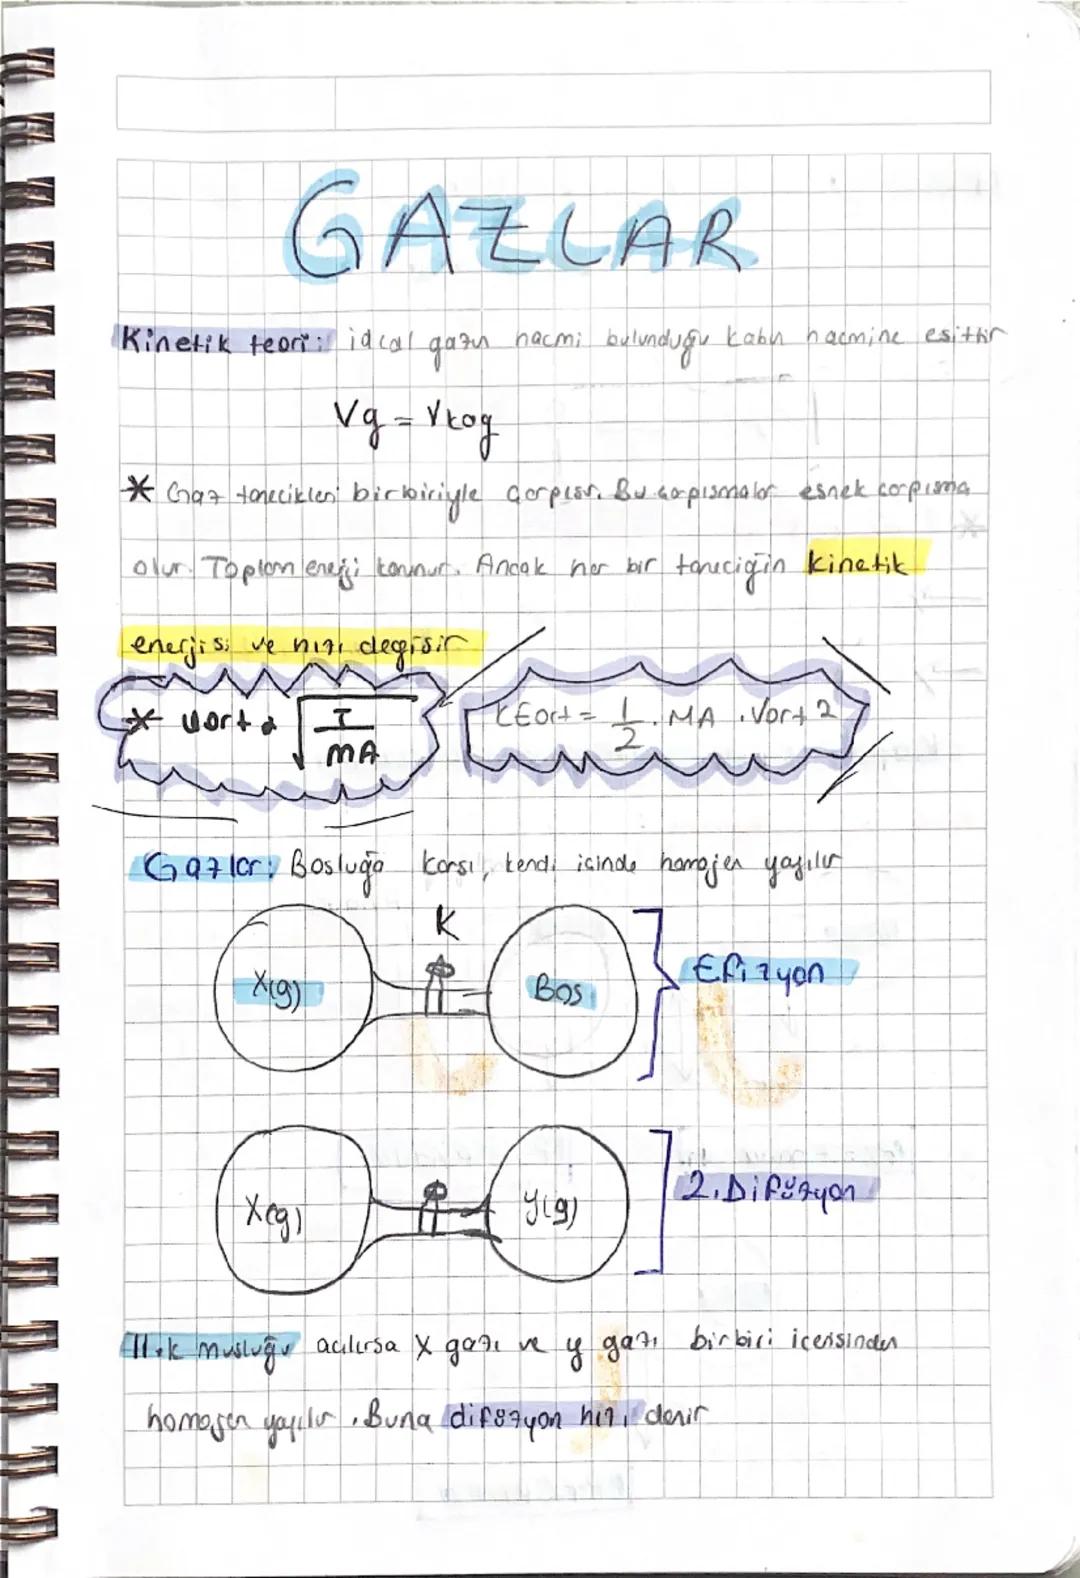 GAZLAR
Kinetik teori: ideal gazın hacmi bulunduğu kabın hacmine esittir
Vg = Vkag
* Gaz tanecikleri birbiriyle çarpışır. Bu çarpısmalar esnek çarpısma
olur. Toplam enerji korunur. Ancak her bir taneciğin kinetik
enerjisi ve hızı degisir
* Vort α √ T / MA
KEort = 1/2 . MA . Vort 2
Gazlar: Bosluğa karsı, kendi icinde homojen yayılır
K
X(g)
Bos
Efizyon
X(g)
y(g)
2. Difüzyon
musluğu acılırsa X gazı ve y gazı birbiri içerisinden
homojen yayılır. Buna difüzyon hızı denir